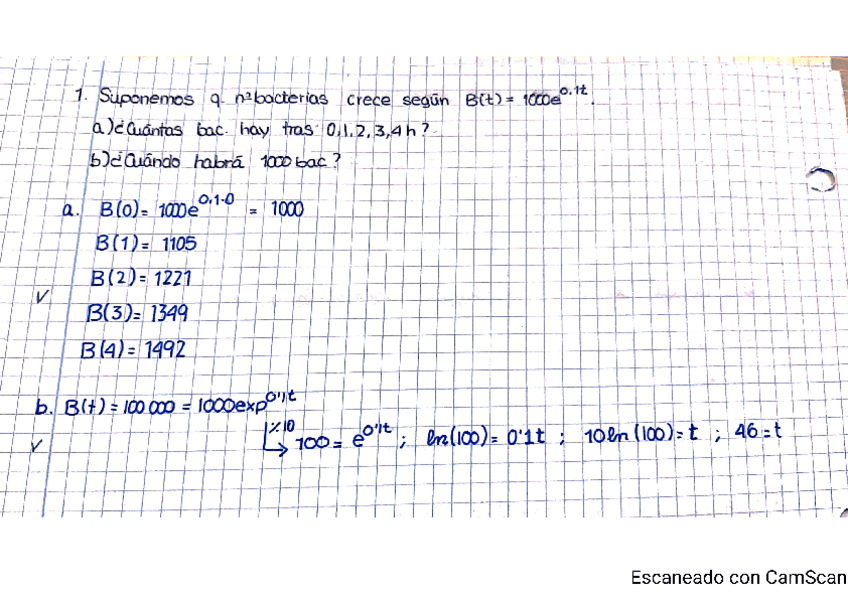 1. Suponemos q. nº bacterias crece según B(t) = 1000e^0.1t.
a) ¿Cuántas bac. hay tras 0,1,2,3,4 h?
b) ¿Cuándo habrá 1000 bac?
a. B(0) = 1000e^0,1·0 = 1000
B(1) = 1105
B(2) = 1221
B(3) = 1349
B(4) = 1492
b. B(t) = 100 000 = 1000exp^0'1t
%10
100 = e^0'1t ; ln(100) = 0'1t ; 10ln(100) = t ; 46 = t
Escaneado con CamScan